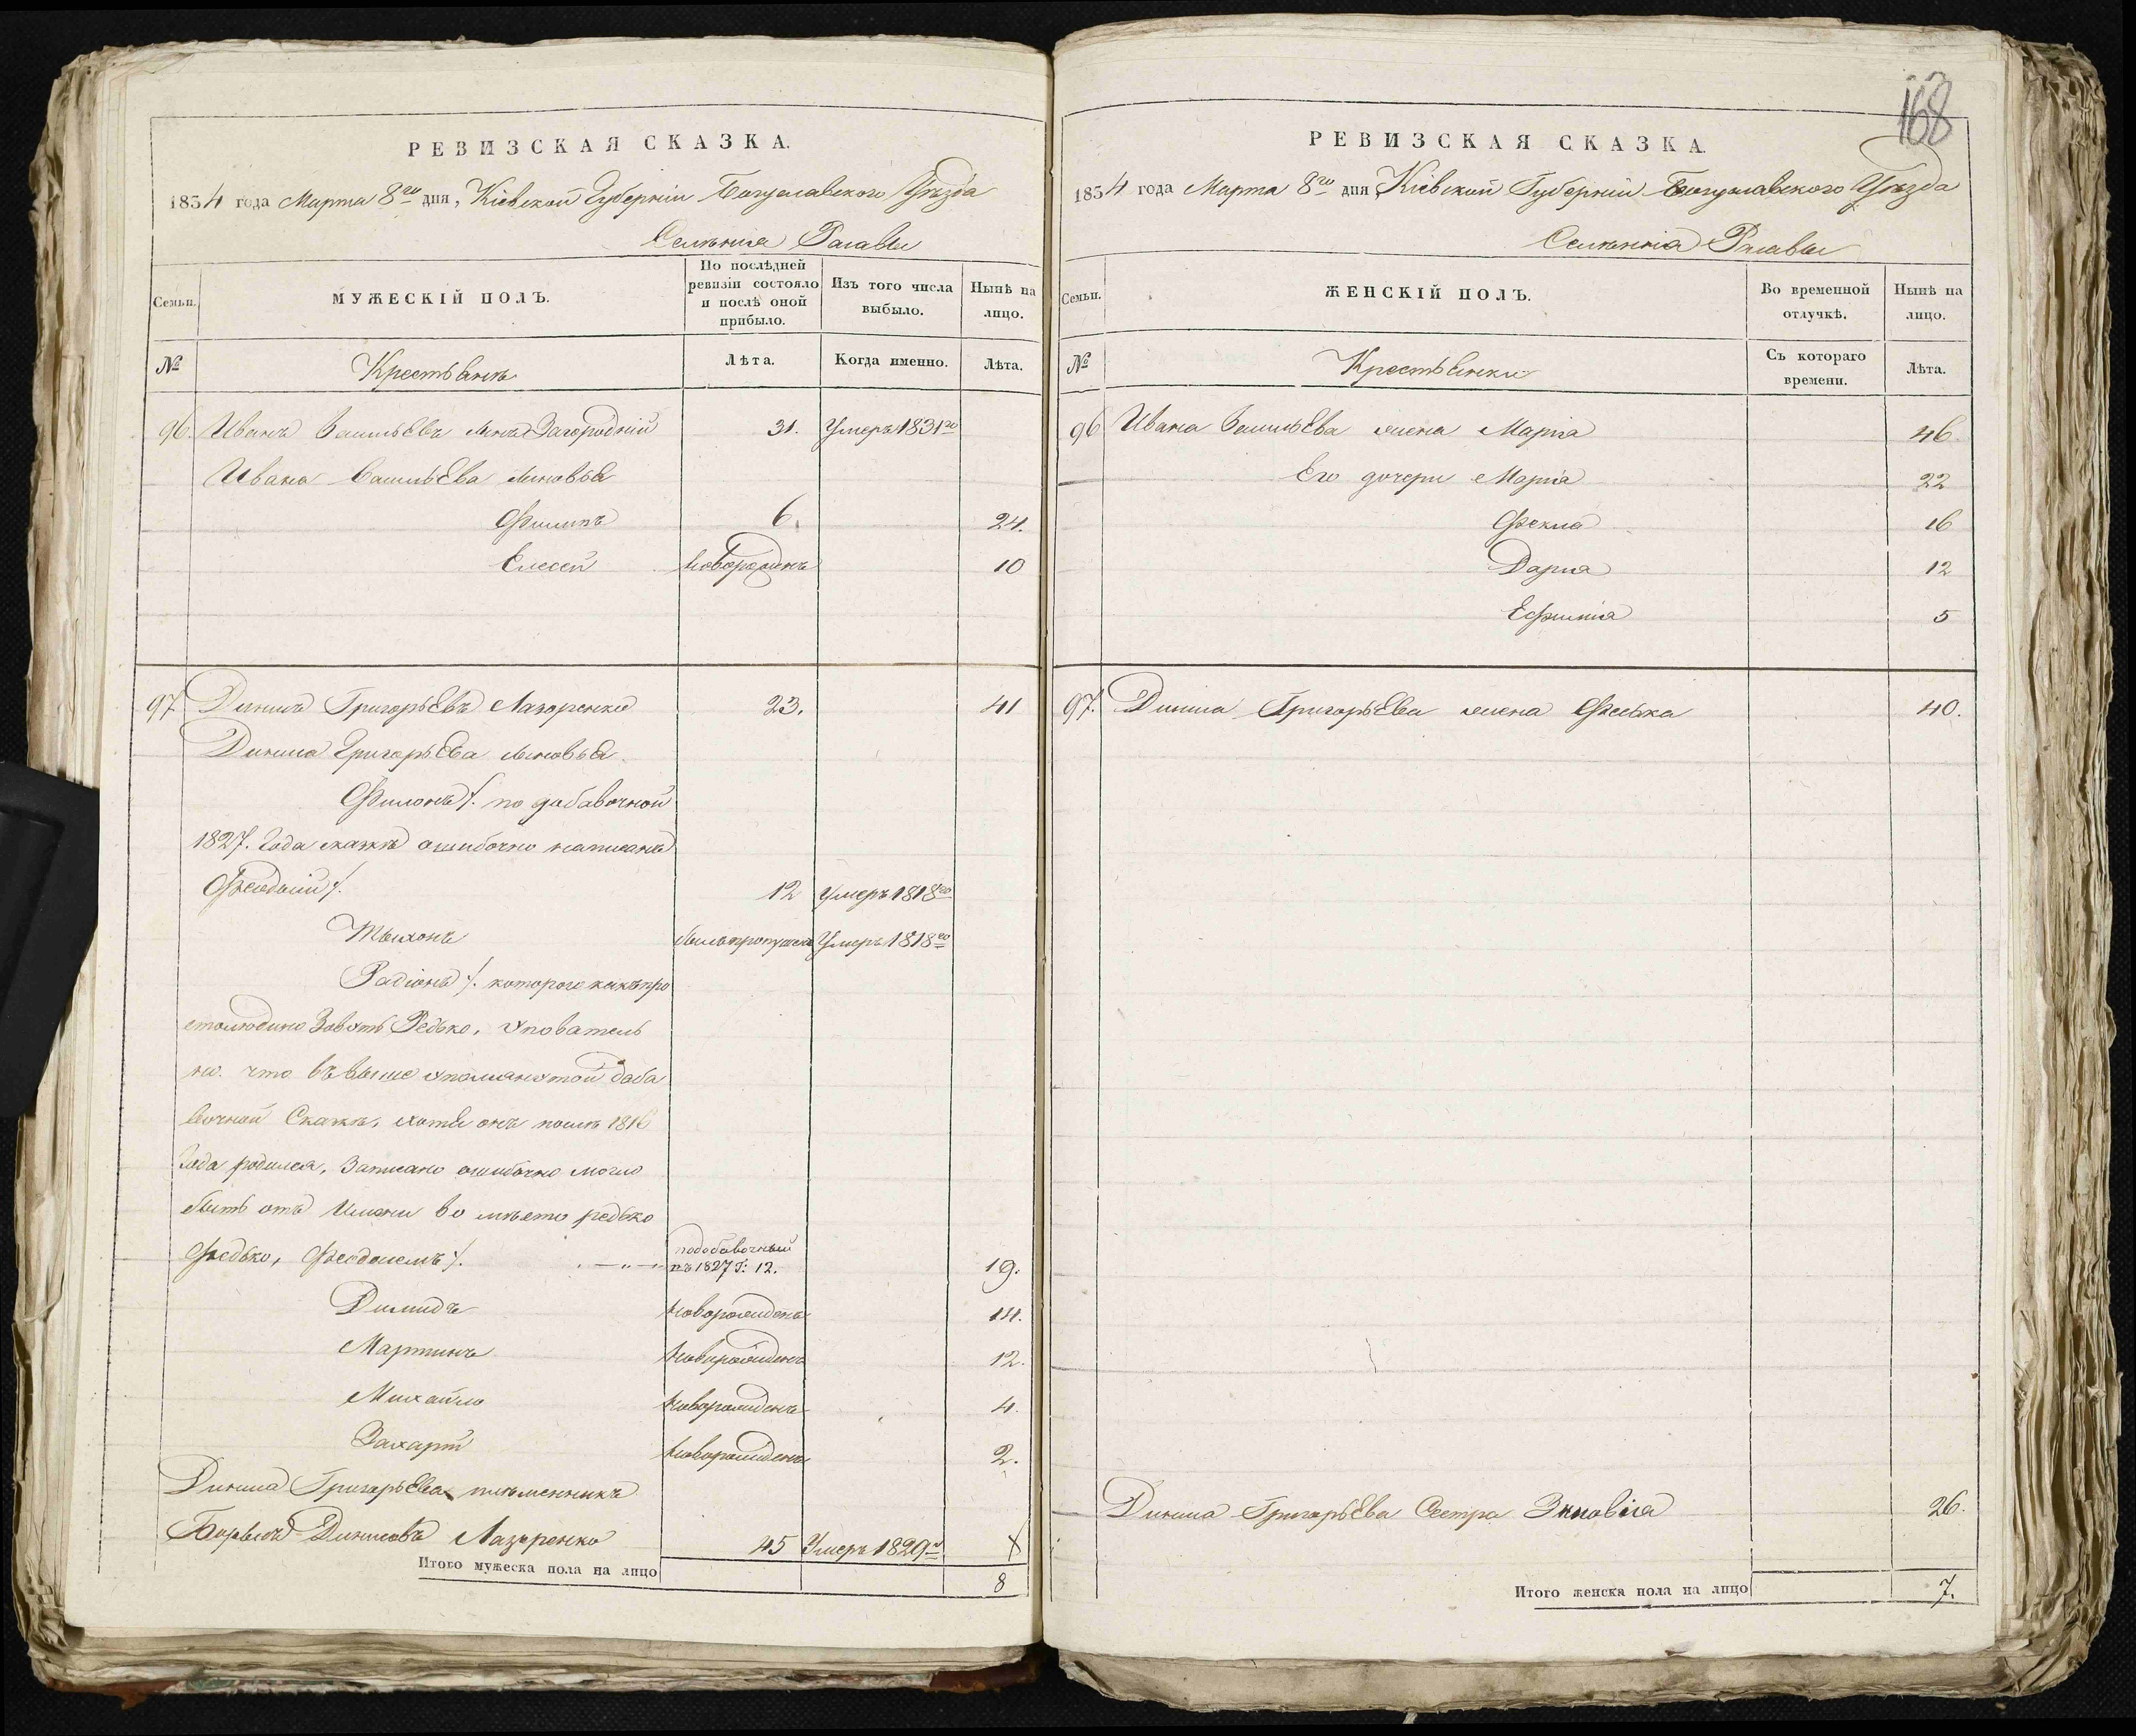 РЕВИЗСКАЯ СКАЗКА.
1834 года Марта 8го дня, Кіевской Губерніи Богуславского Уѣзда
Селенія Ралавы
Семьи.
МУЖЕСКІЙ ПОЛЪ.
По послѣдней ревизіи состояло и послѣ оной прибыло.
Изъ того числа выбыло.
Нынѣ на лицо.
№
Крестьянъ
Лѣта.
Когда именно.
Лѣта.
96. Иванъ Васильевъ сынъ Загородній 31. Умеръ 1831го
Ивана Васильева сыновья
Филипъ 6. 24.
Елесей новорожденъ 10
97 Динисъ Григорьевъ Лазоренко 23. 41
Диниса Григорьева сыновья
Филонъ /. по добавочной
1827. Года сказкѣ ошибочно написанъ
Феодосій /. 12 Умеръ 1818го
Тыхонъ былъ пропущенъ Умеръ 1818го
Радіонъ /. которого какъ про
столюдина Зовутъ Редько, упователь
но. что въ выше упомянутой доба
вочной Сказкѣ, хотя онъ послѣ 1816
Года родился, Записано ошибочно могло
быть отъ Имени во мѣсто редько
Федько, Феодосіемъ /. по добавочный
въ 1827 Г: 12. 19.
Димидъ новорожденъ 14.
Мартинъ новорожденъ 12.
Михайло новорожденъ 4.
Захарій новорожденъ 2.
Диниса Григорьева племенникъ
Динисовъ Лазоренко 45 Умеръ 1829го
Итого мужеска пола на лицо 8
168
РЕВИЗСКАЯ СКАЗКА
1834 года Марта 8го дня Кіевской Губерніи Богуславского Уѣзда
Селенія Ралавы
Семьи.
ЖЕНСКІЙ ПОЛЪ.
Во временной отлучкѣ.
Нынѣ на лицо.
№
Крестьянки
Съ котораго времени.
Лѣта.
96 Ивана Васильева жена Марія 46.
Его дочери Марія 22
Фекла 16
Дарія 12
Ефимія 5
97. Диниса Григорьева жена Феська 40.
Диниса Григорьева Сестра Зиновія 26.
Итого женска пола на лицо 7.